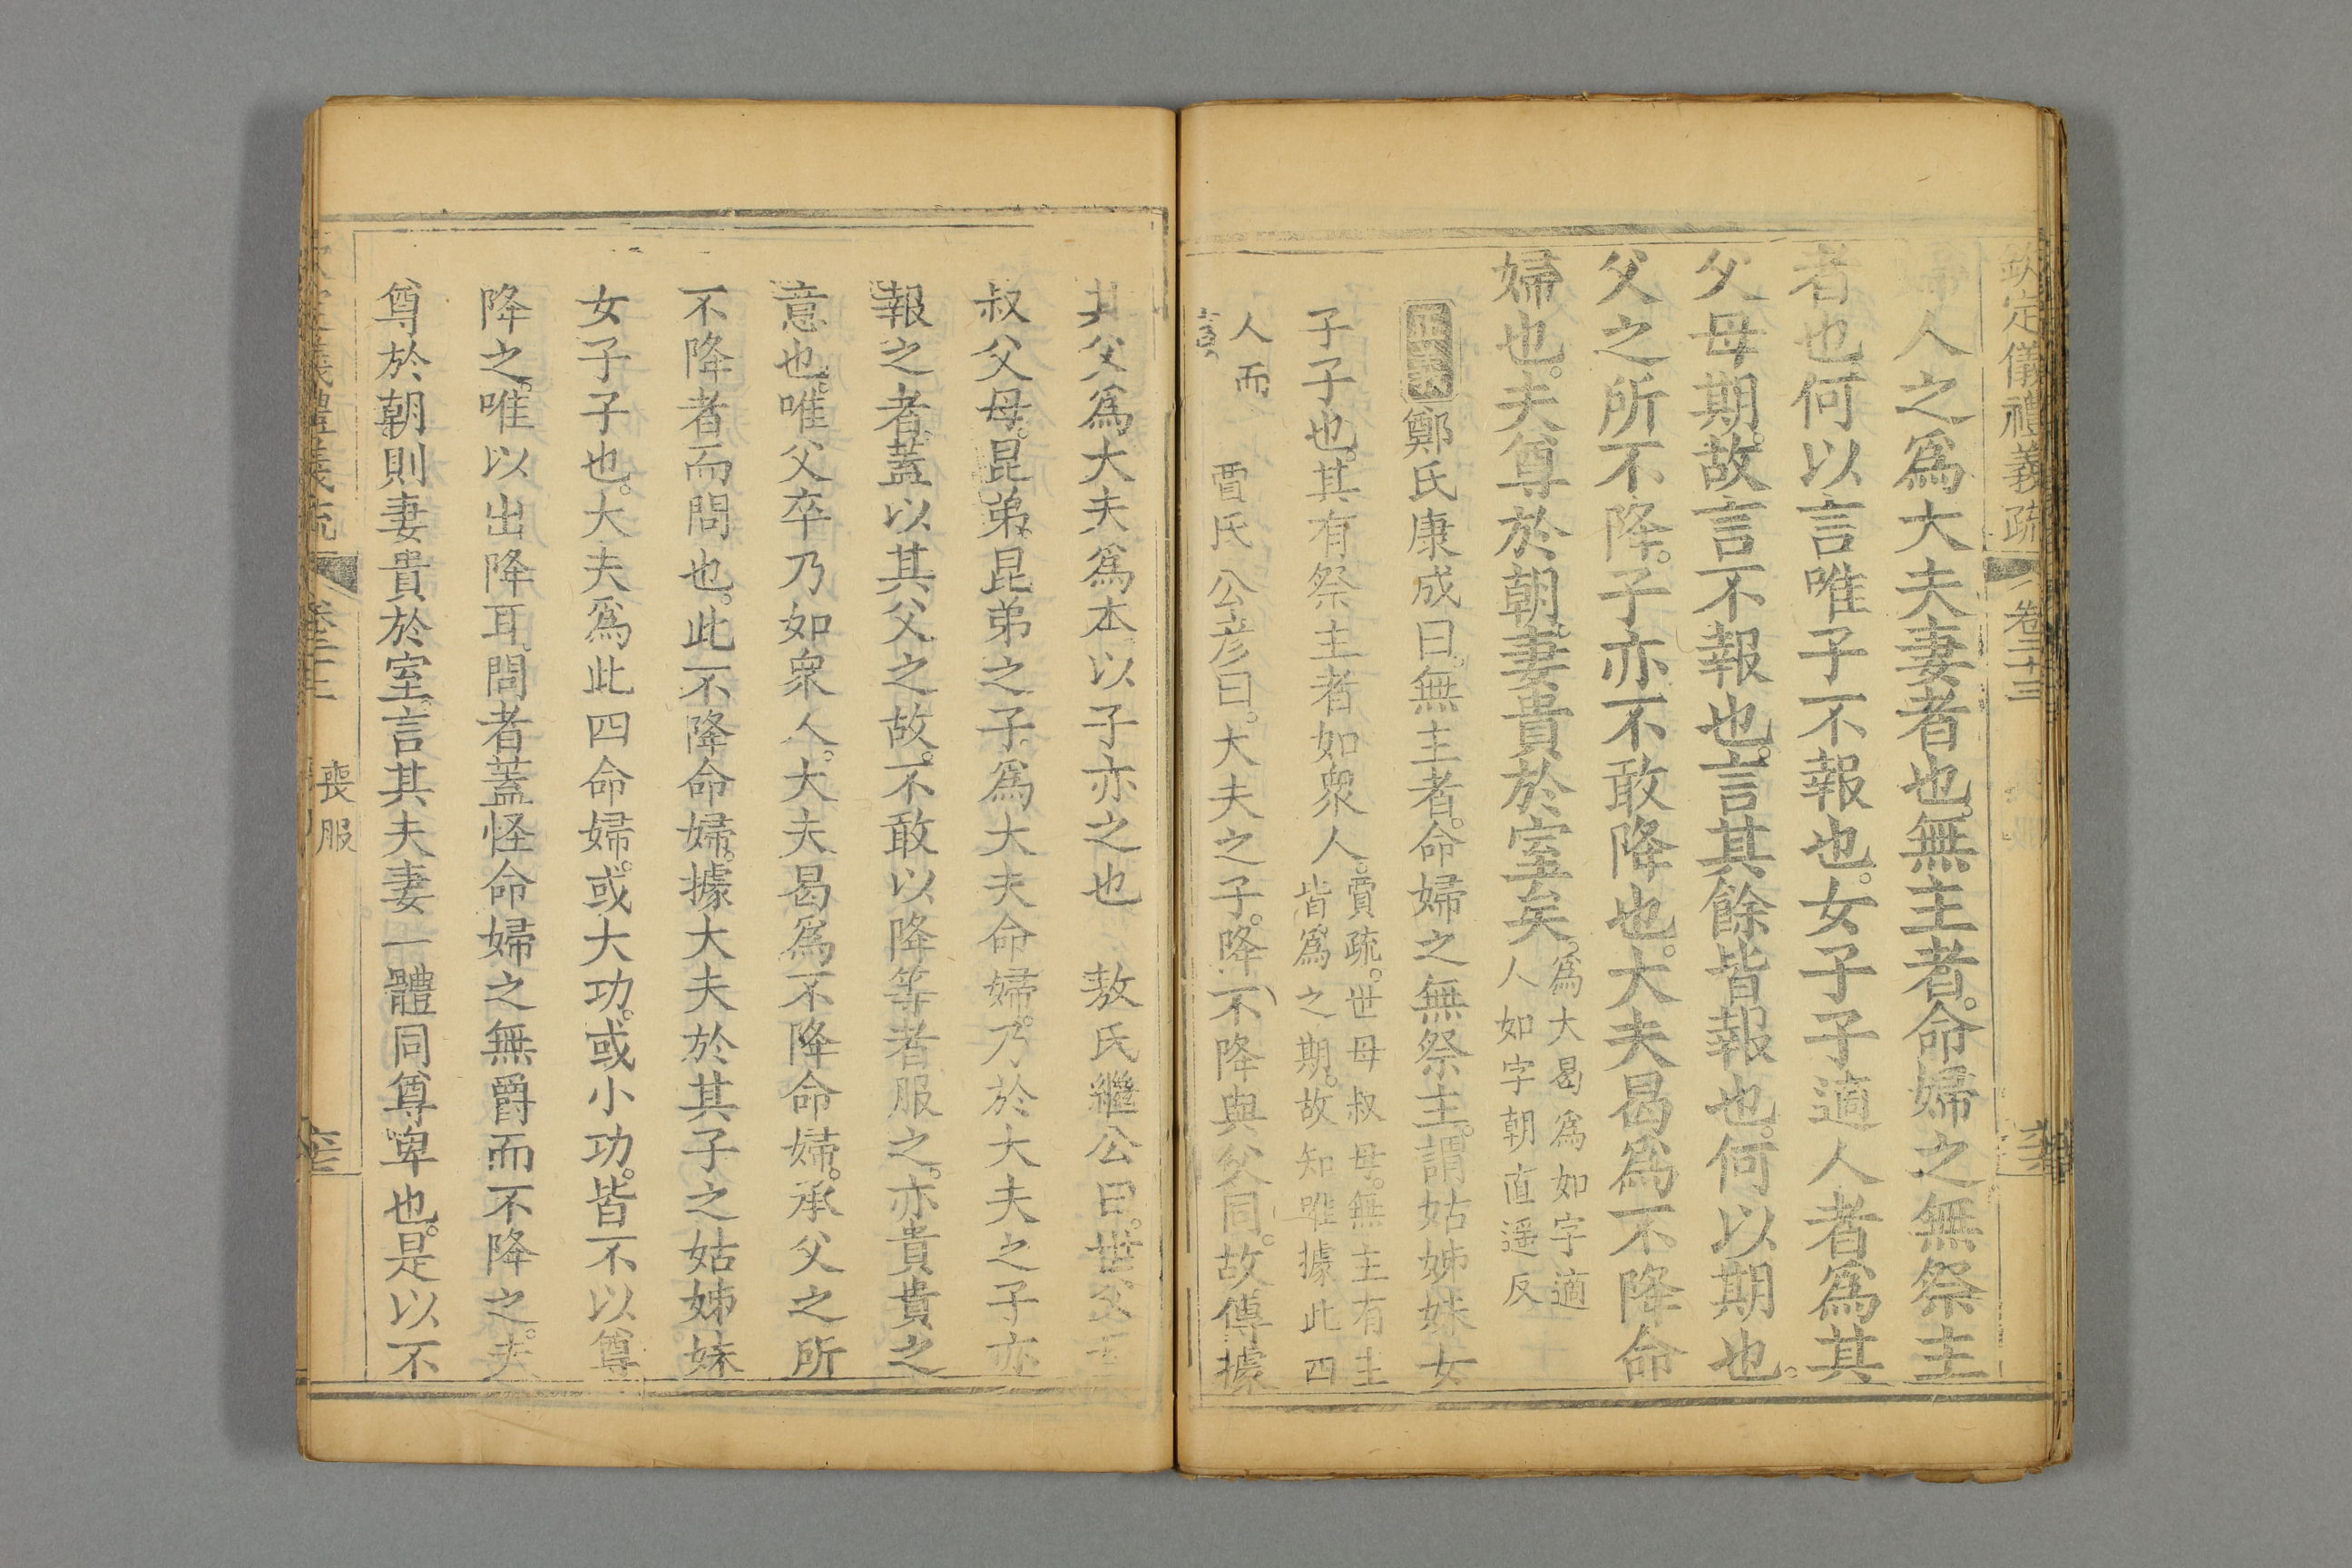 欽定儀禮義疏 卷二十三
婦人之爲大夫妻者也。無主者。命婦之無祭主
者也何以言唯子不報也。女子子適人者爲其
父母期。故言不報也。言其餘皆報也。何以期也。
父之所不降。子亦不敢降也。大夫曷爲不降命
婦也。夫尊於朝。妻貴於室矣。
爲大曷爲如字適
人如字朝直遥反
正義 鄭氏康成曰。無主者。命婦之無祭主。謂姑姊妹女
子子也。其有祭主者如衆人。
賈疏。世母叔母。無主有主
皆爲之期。故知唯據此四
人而
賈氏公彦曰。大夫之子。降、不降與父同。故傳據
其父爲大夫爲本以子亦之也 敖氏繼公曰。世父
叔父母。昆弟。昆弟之子。爲大夫命婦。乃於大夫之子亦
報之者。蓋以其父之故。不敢以降等者服之。亦貴貴之
意也。唯父卒乃如衆人。大夫曷爲不降命婦。承父之所
不降者而問也。此不降命婦。據大夫於其子之姑姊妹
女子子也。大夫爲此四命婦。或大功。或小功。皆不以尊
降之。唯以出降耳。問者蓋怪命婦之無爵而不降之。夫
尊於朝則妻貴於室。言其夫妻一體同尊卑也。是以不
喪服